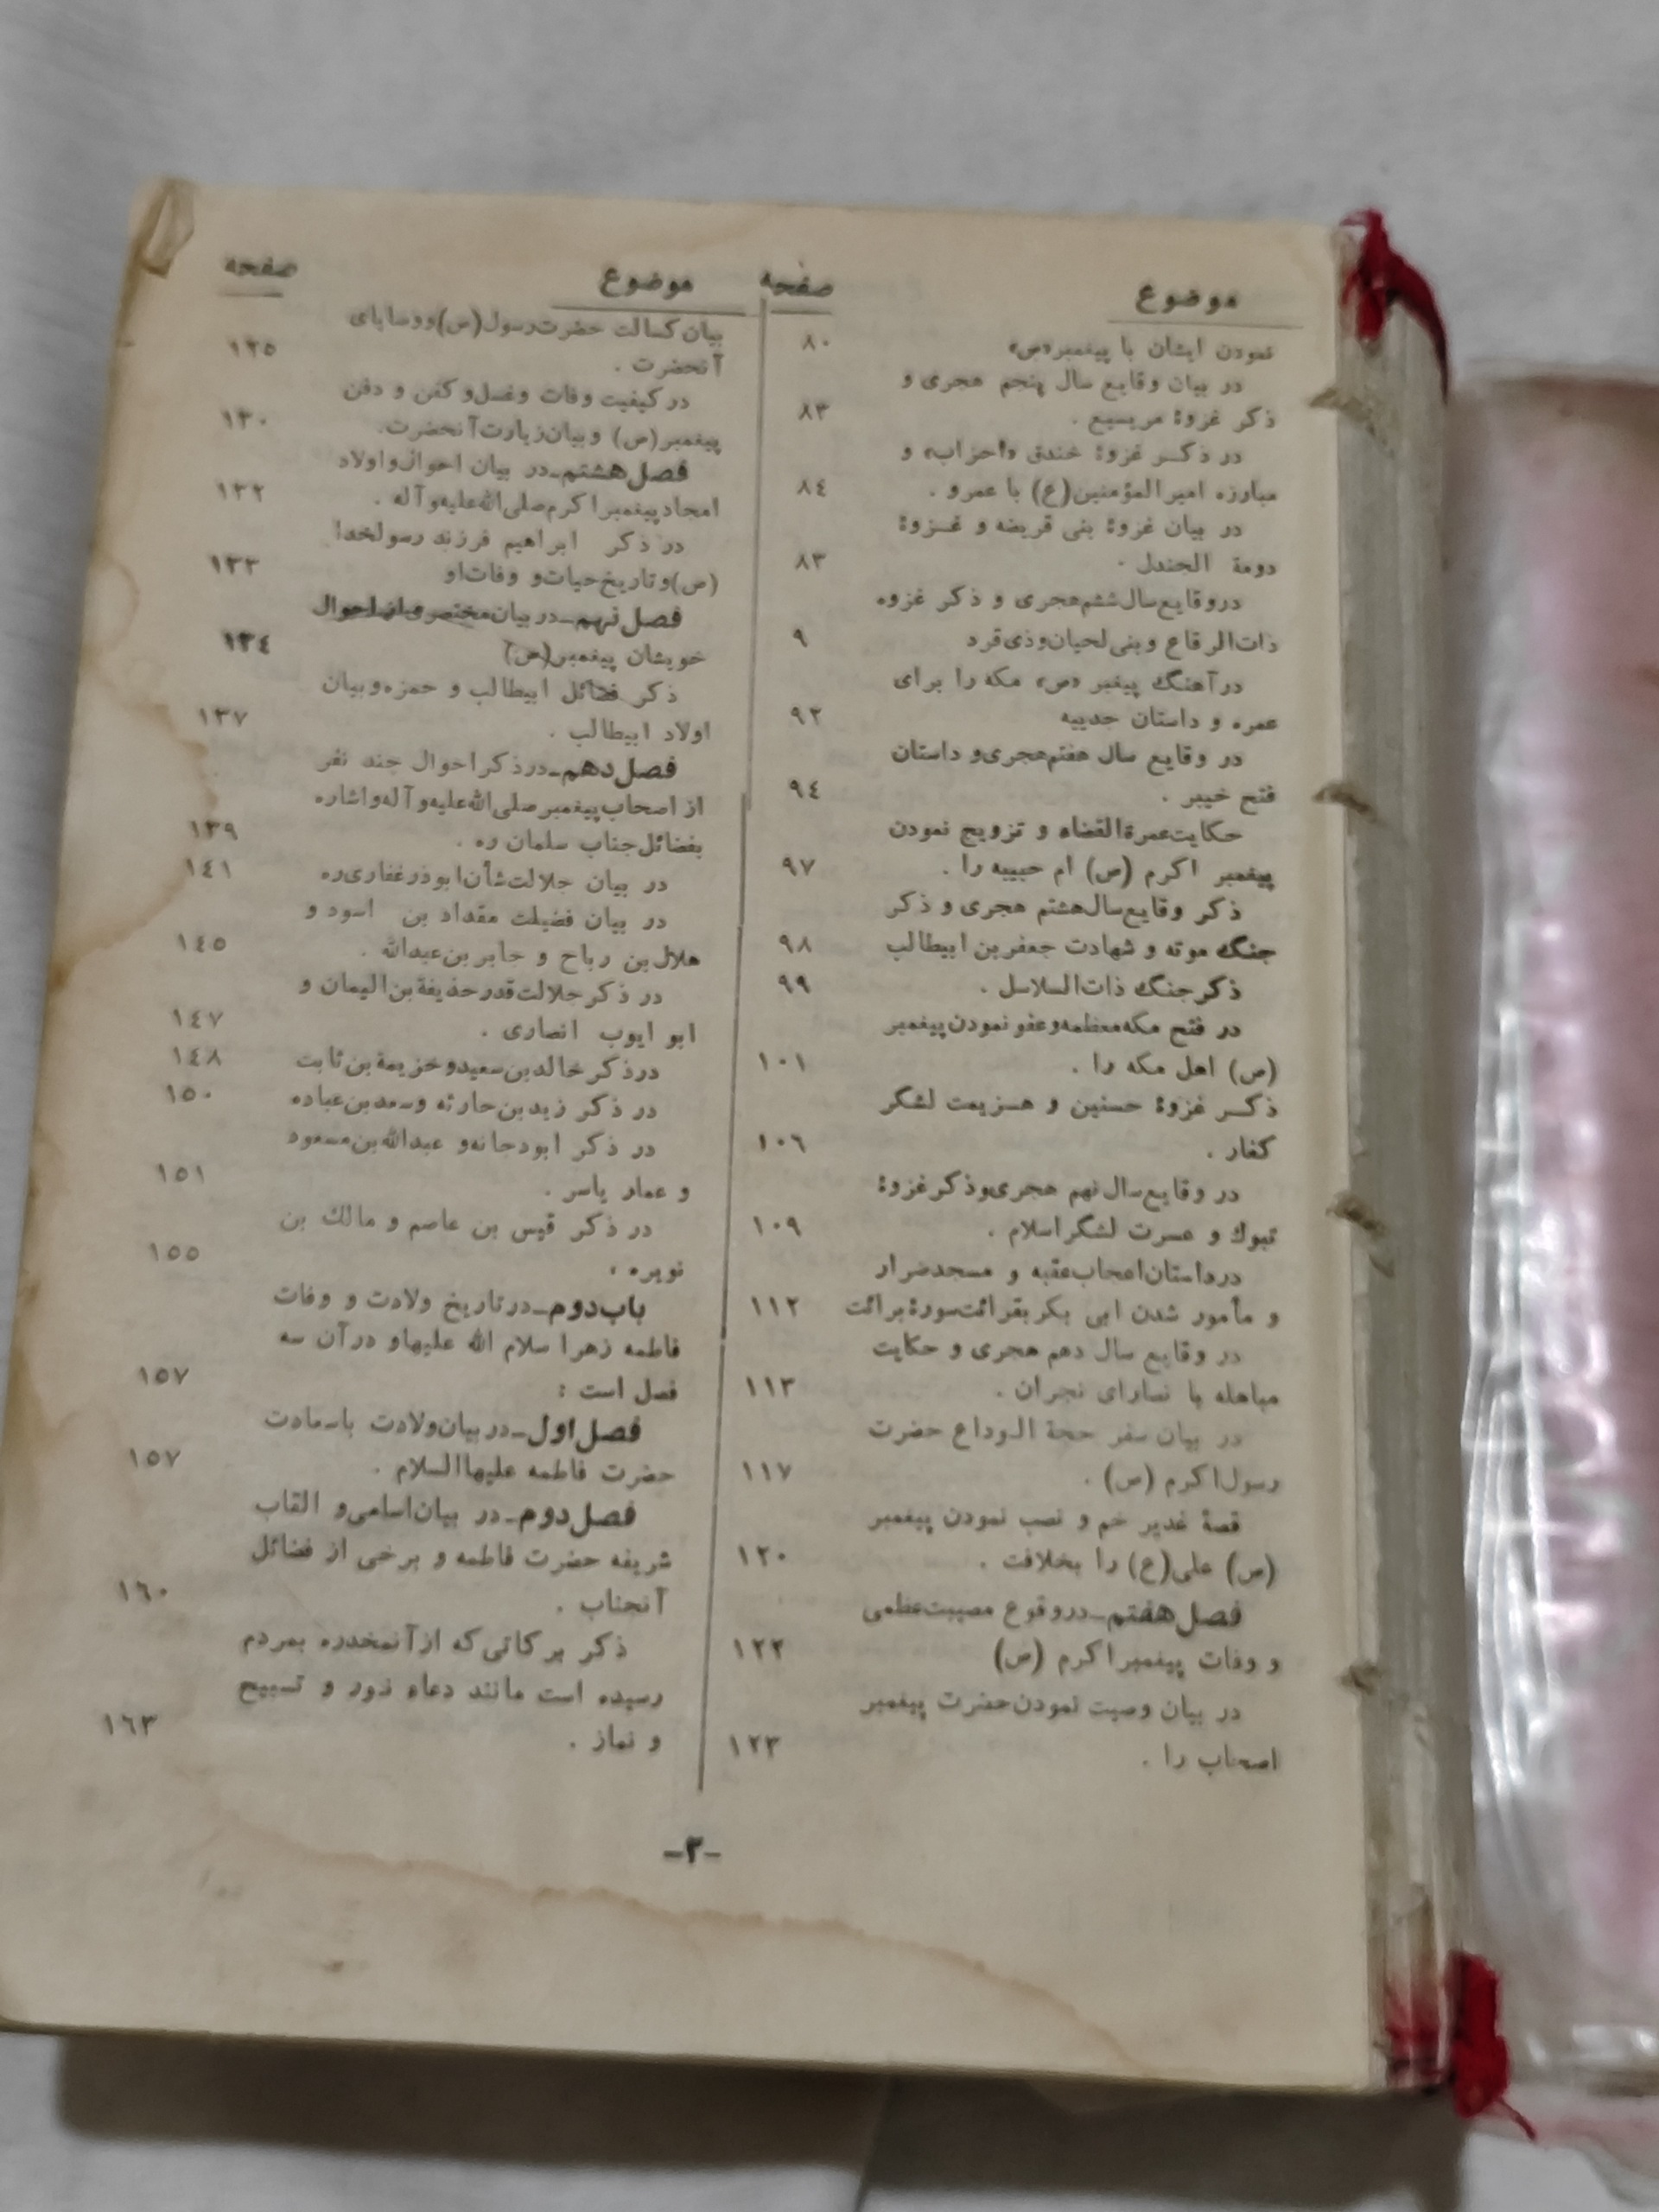 موضوع
صفحه
نمودن ایشان با پیغمبر«ص»
۸۰
در بیان وقایع سال پنجم هجری و
ذکر غزوهٔ مریسیع .
۸۳
در ذکر غزوهٔ خندق «احزاب» و
مبارزه امیرالمؤمنین(ع) با عمرو .
۸٤
در بیان غزوهٔ بنی قریضه و غزوهٔ
دومة الجندل .
۸۳
دروقایع سال ششم هجری و ذکر غزوه
ذات الرقاع و بنی لحیان و ذی قرد
۹
در آهنگ پیغبر «ص» مکه را برای
عمره و داستان حدیبیه
۹۲
در وقایع سال هفتم هجری و داستان
فتح خیبر .
۹٤
حکایت عمرة القضاء و تزویج نمودن
پیغمبر اکرم (ص) ام حبیبه را .
۹۷
ذکر وقایع سال هشتم هجری و ذکر
جنگ موته و شهادت جعفر بن ابیطالب
۹۸
ذکر جنگ ذات السلاسل .
۹۹
در فتح مکه معظمه و عفو نمودن پیغمبر
(ص) اهل مکه را .
۱۰۱
ذکر غزوهٔ حسنین و هزیمت لشگر
کفار .
۱۰٦
در وقایع سال نهم هجری و ذکر غزوهٔ
تبوك و عسرت لشگر اسلام .
۱۰۹
در داستان اصحاب عقبه و مسجد ضرار
و مأمور شدن ابی بکر بقرائت سورهٔ برائت
۱۱۲
در وقایع سال دهم هجری و حکایت
مباهله با نصارای نجران .
۱۱۳
در بیان سفر حجة الوداع حضرت
رسول اکرم (ص) .
۱۱۷
قصهٔ غدیر خم و نصب نمودن پیغمبر
(ص) علی(ع) را بخلافت .
۱۲۰
فصل هفتم_ دروقوع مصیبت عظمی
و وفات پیغمبر اکرم (ص)
۱۲۲
در بیان وصیت نمودن حضرت پیغمبر
اصحاب را .
۱۲۳
موضوع
صفحه
بیان کسالت حضرت رسول(ص) و وصایای
آنحضرت .
۱۲۵
در کیفیت وفات و غسل و کفن و دفن
پیغمبر(ص) و بیان زیارت آنحضرت.
۱۳۰
فصل هشتم_ در بیان احوال و اولاد
امجاد پیغمبر اکرم صلی الله علیه و آله .
۱۳۲
در ذکر ابراهیم فرزند رسولخدا
(ص) و تاریخ حیات و وفات او
۱۳۳
فصل نهم_ در بیان مختصری از احوال
خویشان پیغمبر(ص)
۱۳٤
ذکر فضائل ابیطالب و حمزه و بیان
اولاد ابیطالب .
۱۳۷
فصل دهم_ در ذکر احوال چند نفر
از اصحاب پیغمبر صلی الله علیه و آله و اشاره
بفضائل جناب سلمان ره .
۱۳۹
در بیان جلالت شأن ابوذر غفاری ره
۱٤۱
در بیان فضیلت مقداد بن اسود و
هلال بن رباح و جابر بن عبدالله .
۱٤۵
در ذکر جلالت قدر حذیفة بن الیمان و
ابو ایوب انصاری .
۱٤۷
در ذکر خالد بن سعید و خزیمة بن ثابت
۱٤۸
در ذکر زید بن حارثه و سعد بن عباده
۱۵۰
در ذکر ابودجانه و عبدالله بن مسعود
و عمار یاسر .
۱۵۱
در ذکر قیس بن عاصم و مالك بن
نویره .
۱۵۵
باب دوم_ در تاریخ ولادت و وفات
فاطمه زهرا سلام الله علیها و در آن سه
فصل است :
۱۵۷
فصل اول_ در بیان ولادت باسعادت
حضرت فاطمه علیها السلام .
۱۵۷
فصل دوم_ در بیان اسامی و القاب
شریفه حضرت فاطمه و برخی از فضائل
آنجناب .
۱٦۰
ذکر برکاتی که از آنمخدره بمردم
رسیده است مانند دعاء نور و تسبیح
و نماز .
۱٦۳
-۳-